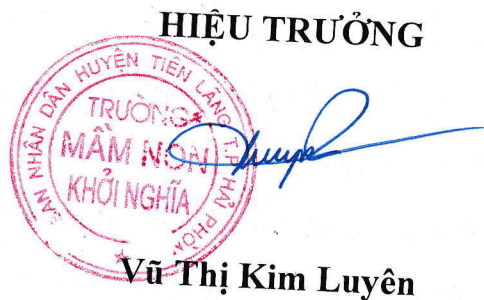 HIỆU TRƯỞNG
BAN NHÂN DÂN HUYỆN TIÊN LÃNG T.P HẢI PHÒNG
TRƯỜNG
MẦM NON
KHỞI NGHĨA
Vũ Thị Kim Luyên